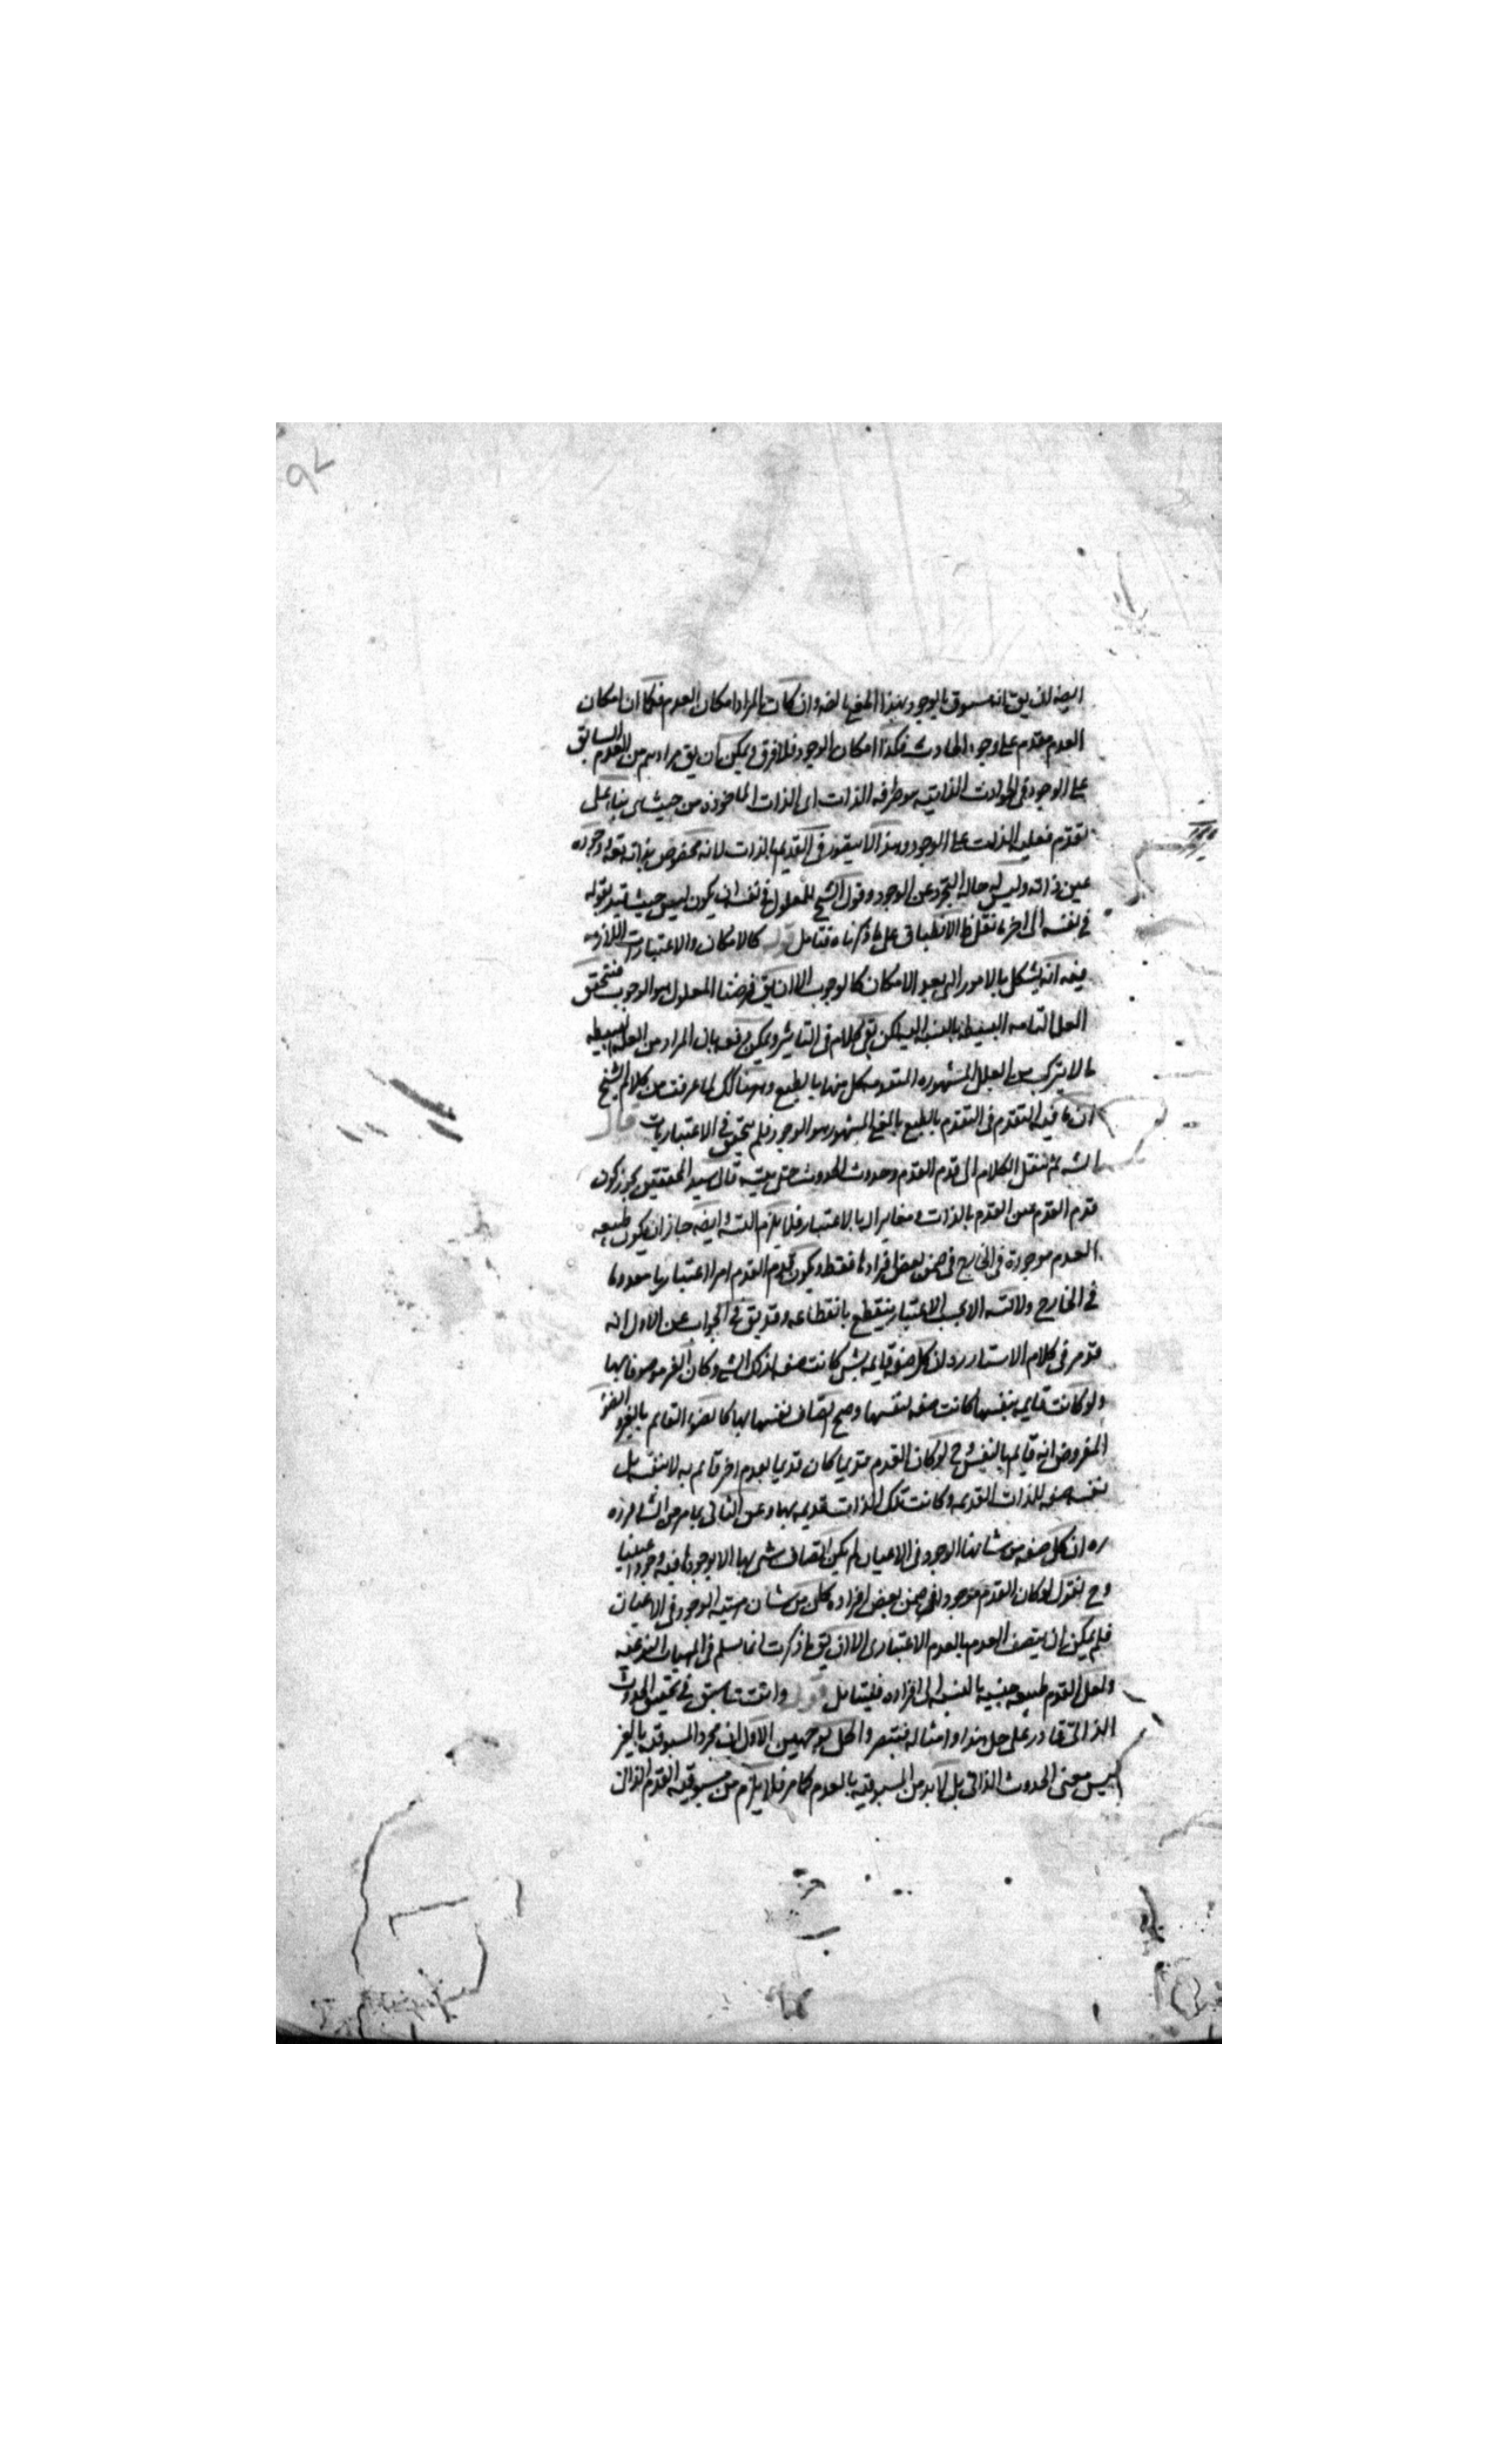 ايضا لان يق انه مسبوق بالوجود بهذا المعنى ايضا وان كان المراد امكان العدم فكما ان امكان
العدم مقدم على وجود الحادث فكذا امكان الوجود فلا فرق ويمكن ان يق مرادهم من العدم السابق
على الوجود فى الحوادث الذاتية هو ظرفه الذات اى الذات الماخوذة من حيث هى بناء على
تقدم فعلية الذات على الوجود وهذا لا يتصور فى القديم بالذات لانه محفوض بذاته تعه وجوده
عين ذاته وليس له حالة التجرد عن الوجود وقول الشيخ للمعلول فى نفسه ان يكون ليس حيث قيد بقوله
فى نفسه الى اخر ما نقل الانطباق على ما ذكرناه فتامل قوله كالامكان والاعتبارات اللازمة
فيه انه يشكل بالامور التى بعد الامكان كالوجوب الا ان يق فرضنا المعلول هو الوجوب فتحقق
العلة التامة البسيطة بالنسبة اليه لكن بقى الكلام فى التاثير ويمكن دفعه بان المراد من العلة البسيطة
ما لا يتركب من العلل المشهورة المتقدمة كل منها بالطبع وهنا كك لما عرفت من كلام الشيخ
ان ما فيه التقدم فى التقدم بالطبع بالمعنى المشهور هو الوجود فلم يتحقق فى الاعتباريات قال
الش ثم ننقل الكلام الى قدم القدم وحدوث الحدوث حتى يتسه قال سيد المحققين يجوز كون
قدم القدم عين القدم بالذات ومغايرا له بالاعتبار فلا يلزم التسه وايضا جاز ان يكون طبيعة
القدم موجودة فى الخارج فى ضمن بعض افرادها فقط ويكون قدم القدم امرا اعتباريا معدوما
فى الخارج ولا تسه الا بحسب الاعتبار فينقطع بانقطاعه وقد يق فى الجواب عن الاول انه
قد مر فى كلام الاستاد ره ان كل صفة قايمة بشى كانت صفة لذلك الشى وكان الغير موصوفا بها
ولو كانت قايمة بنفسها كانت صفة لنفسها وصح اتصاف نفسها بها كالضوء القايم بالغير والضوء
المفروض انه قايم بالنفس وح لو كان القدم قديما كان قديما بقدم اخر قايم به لا بنفسه بل
نفسه صفة للذات القديمة وكانت تلك الذات قديمة بها وعن الثانى بما مر من الشافرده
ره ان كل صفة من شانها الوجود فى الاعيان لم يكن اتصاف شى بها الا بوجودها فيه وجودا عينيا
وح نقول لو كان القدم موجودا فى ضمن بعض افراده كان من شان هيته الوجود فى الاعيان
فلم يمكن ان يتصف القدم بالقدم الاعتبارى الا ان يق ما ذكرت انما يسلم فى المهيات النوعية
ولعل القدم طبيعة جنسية بالنسبة الى افراده فليتامل قوله وانت بما سبق فى تحقيق الحدوث
الذاتى قادر على حل هذا وامثاله فتبصر والحل بوجهين الاول ان مجرد المسبوقية بالغير
ليس معنى الحدوث الذاتى بل لا بد من المسبوقية بالعدم كما مر فلا يلزم من مسبوقية القدم الذاتى